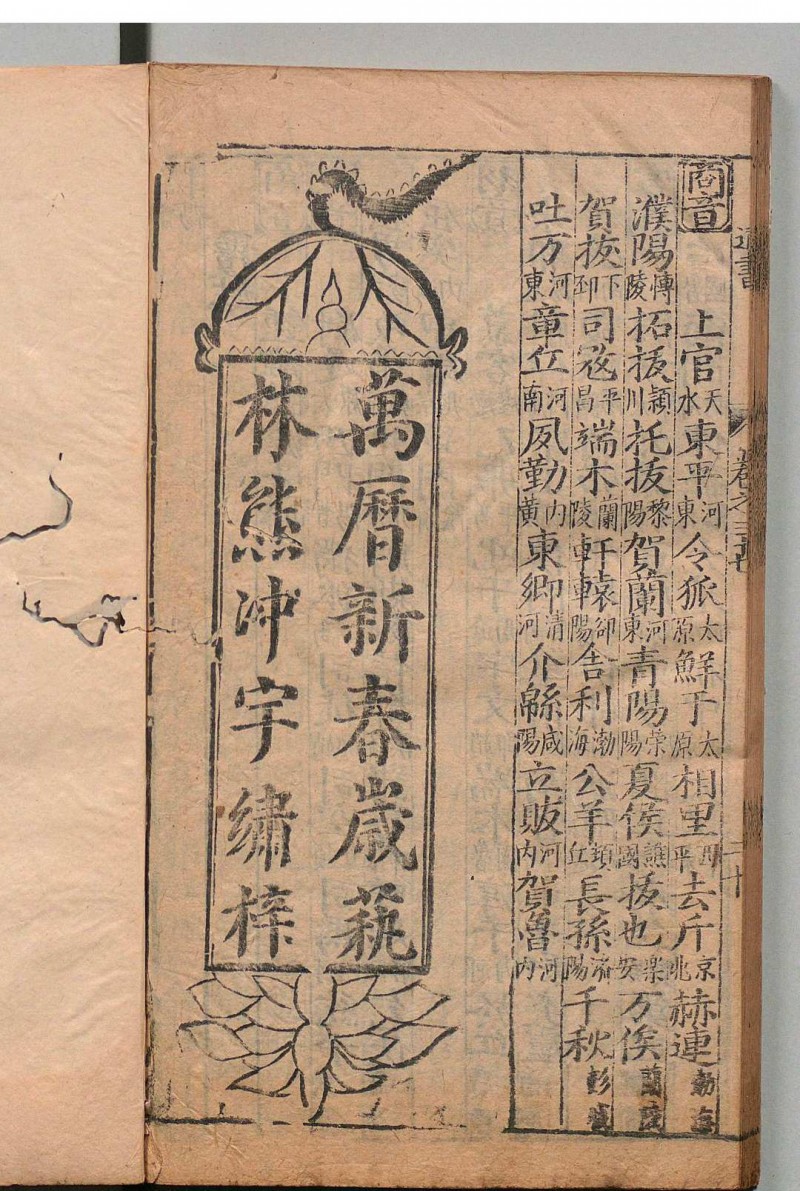 商音
上官天水東平河東令狐太原鮮于太原相里西平去斤京兆赫連勃海
濮陽博陵拓拔潁川托拔黎陽賀蘭河東青陽榮陽夏侯譙國拔也樂安万俟蘭陵
賀拔下邳司寇平昌端木蘭陵軒轅郃陽舍利渤海公羊頓丘長孫濟陽千秋
吐万河東章丘河南夙勤内黄東鄉清河介緜咸陽立販河内賀魯河内
萬曆新春歲萟
林熊冲宇繡梓
通書
卷之三十七
二十